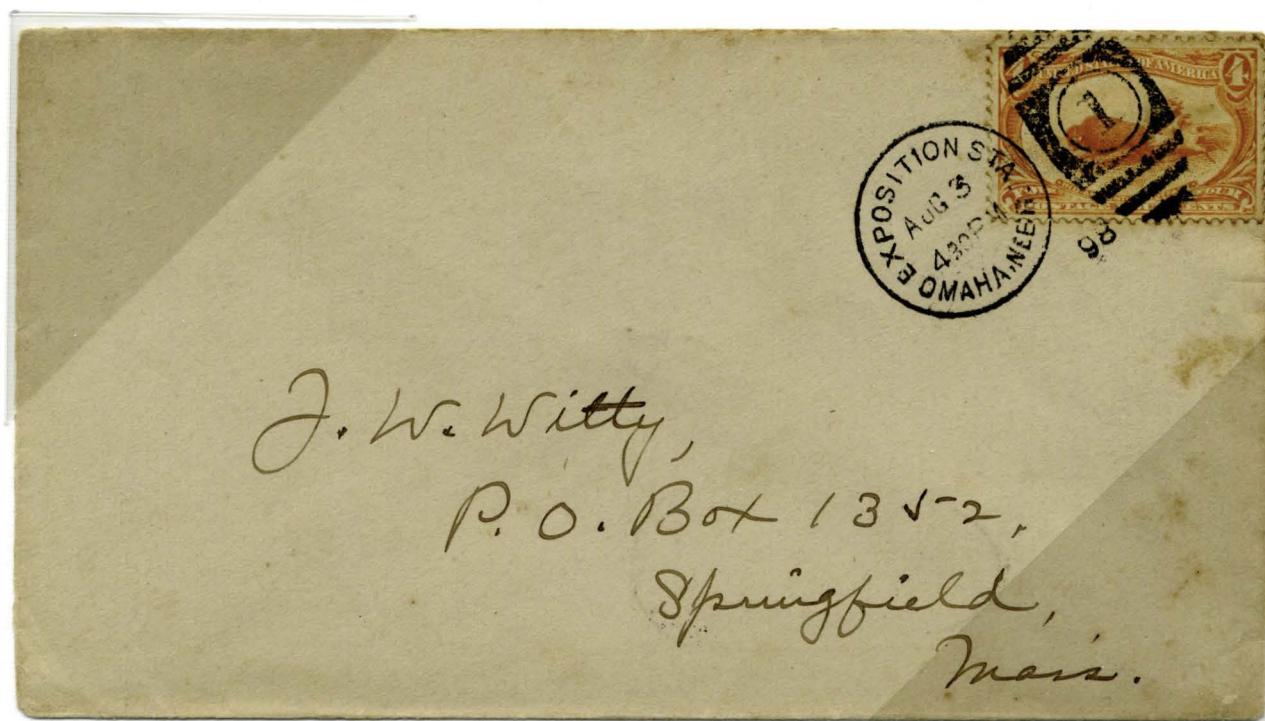 UNITED STATES OF AMERICA 4
1
EXPOSITION STA.
AUG 3
4 30 PM
OMAHA, NEBR.
98
J. W. Witty,
P. O. Box 1352,
Springfield,
Mass.